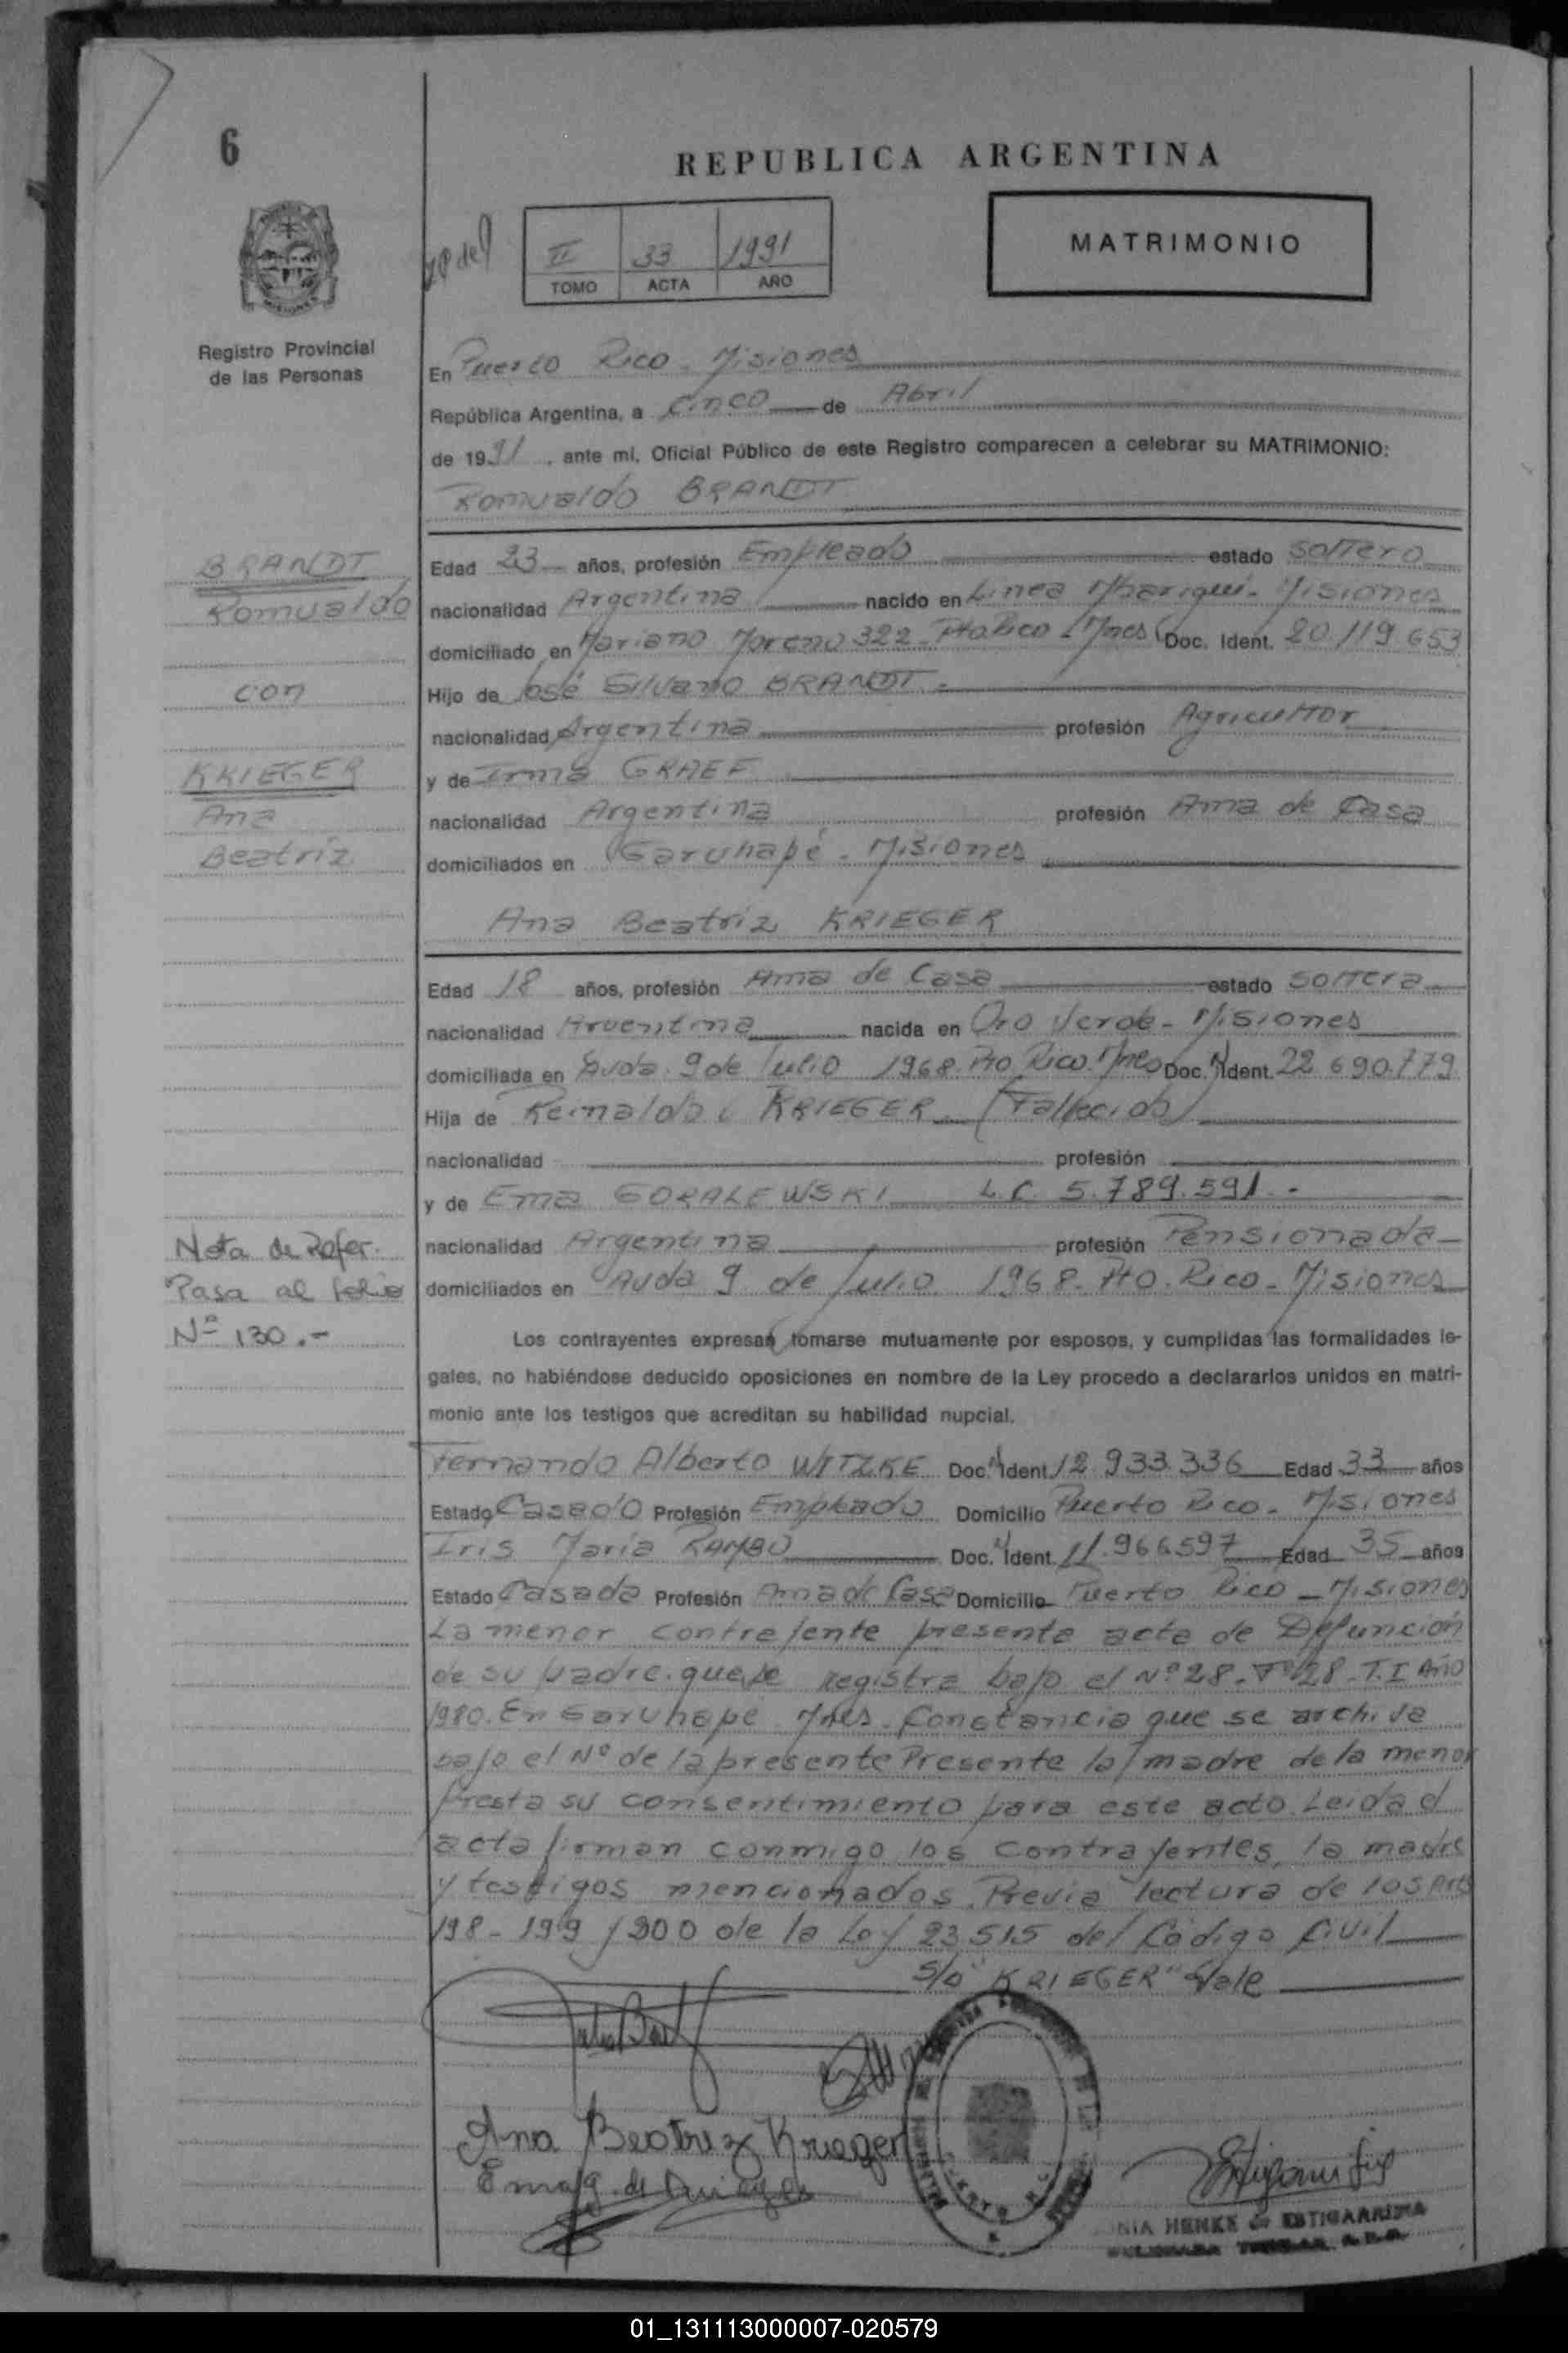 6
REPUBLICA ARGENTINA
II 33 1991
TOMO ACTA AÑO
MATRIMONIO
Registro Provincial
de las Personas
En Puerto Rico - Misiones
República Argentina, a Cinco de Abril
de 1991, ante mí, Oficial Público de este Registro comparecen a celebrar su MATRIMONIO:
Romualdo BRANDT
BRANDT
Romualdo
con
KRIEGER
Ana
Beatriz
Edad 23 años, profesión Empleado estado soltero
nacionalidad Argentina nacido en Linea Mbariguí - Misiones
domiciliado en Mariano Moreno 322 - Pto Rico - Mnes Doc. Ident. 20.119.653
Hijo de José Silvano BRANDT -
nacionalidad Argentina profesión Agricultor
y de Irma GRAEF
nacionalidad Argentina profesión Ama de Casa
domiciliados en Garuhapé - Misiones
Ana Beatriz KRIEGER
Edad 18 años, profesión Ama de Casa estado soltera
nacionalidad Argentina nacida en Oro Verde - Misiones
domiciliada en Avda. 9 de Julio 1968. Pto Rico. Mnes Doc. Ident. 22.690.779
Hija de Reinaldo KRIEGER (Fallecido)
nacionalidad profesión
y de Ema GORALEWSKI L.C. 5.789.591.-
nacionalidad Argentina profesión Pensionada
domiciliados en Avda 9 de Julio 1968. Pto. Rico - Misiones
Nota de Refer.
Pasa al folio
Nº 130.-
Los contrayentes expresan tomarse mutuamente por esposos, y cumplidas las formalidades le-
gales, no habiéndose deducido oposiciones en nombre de la Ley procedo a declararlos unidos en matri-
monio ante los testigos que acreditan su habilidad nupcial.
Fernando Alberto WITZKE Doc. Ident. 12.933.336 Edad 33 años
Estado Casado Profesión Empleado Domicilio Puerto Rico - Misiones
Iris Maria RAMBO Doc. Ident. 11.966.597 Edad 35 años
Estado Casada Profesión Ama de Casa Domicilio Puerto Rico - Misiones
La menor contrayente presente acta de Defunción
de su padre que se registra bajo el Nº 28 - Fº 28 - T. I Año
1980. En Garuhape Mnes. Constancia que se archiva
bajo el Nº de la presente Presente la madre de la menor
Presta su consentimiento para este acto. Leida el
acta firman conmigo los contrayentes, la madre
y testigos mencionados. Previa lectura de los Arts
198 - 199 y 200 de la Ley 23.515 del Código Civil
S/o "KRIEGER" Vale
Ana Beatriz Krieger
Ema G. de Krieger
HENKE de ESTIGARRIBIA
01_131113000007-020579